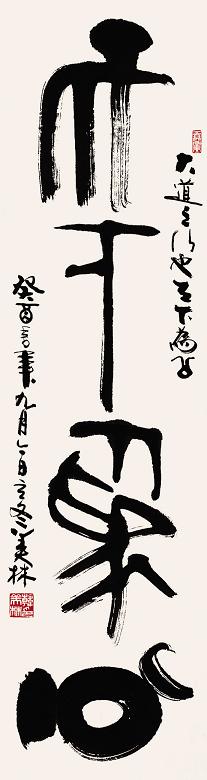 天下為公
大道之行也天下為公
癸酉 九月 日 冬美林